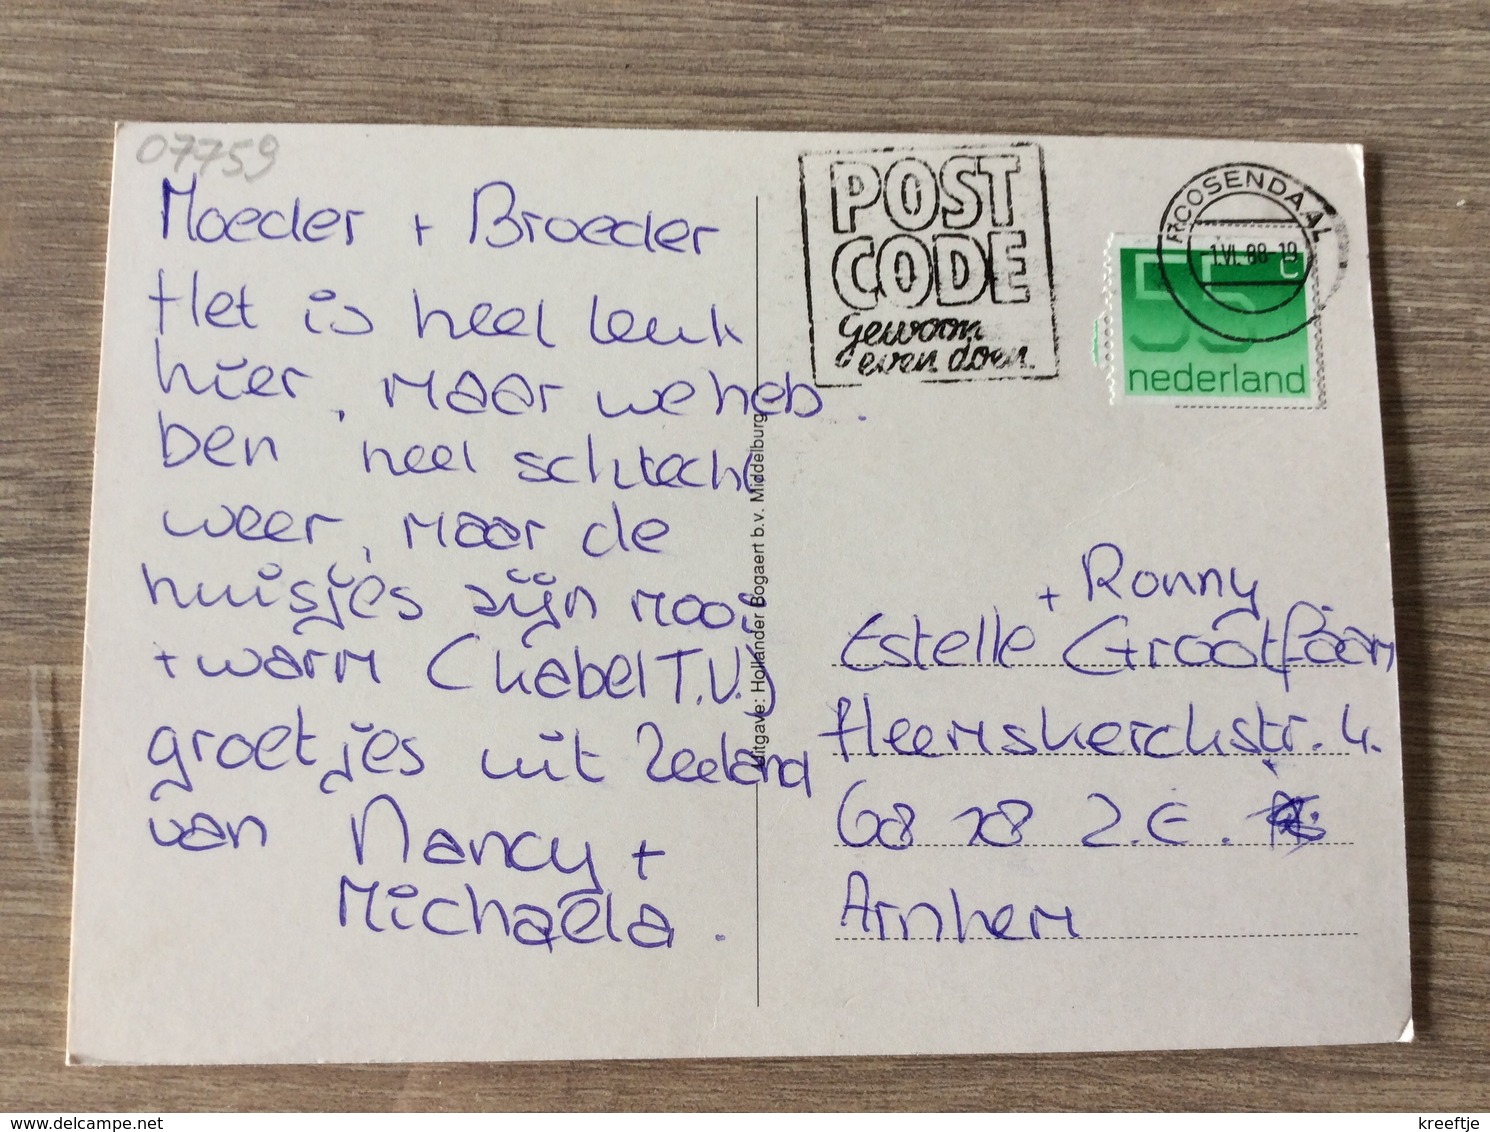 07759
Moeder + Broeder
Het is heel leuk
hier, maar we heb
ben heel schlecht
weer, maar de
huisjes zijn mooi
+ warm (kabel T.V.)
groetjes uit Zeeland
van Nancy +
Michaela.
Uitgave: Hollander Bogaert b.v. Middelburg
POST
CODE
gewoon
even doen.
ROOSENDAAL
1.VI.88-19
55 c
nederland
+ Ronny
Estelle Grootfaam
Heemskerckstr. 4.
68 28 2.E.
Arnhem
delcampe.net
kreeftje